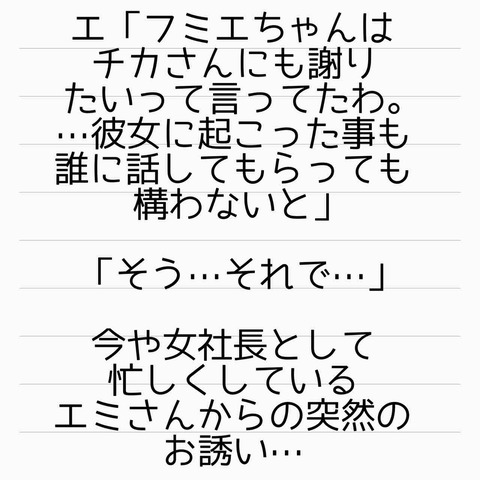 エ「フミエちゃんは
チカさんにも謝り
たいって言ってたわ。
…彼女に起こった事も
誰に話してもらっても
構わないと」
「そう…それで…」
今や女社長として
忙しくしている
エミさんからの突然の
お誘い…